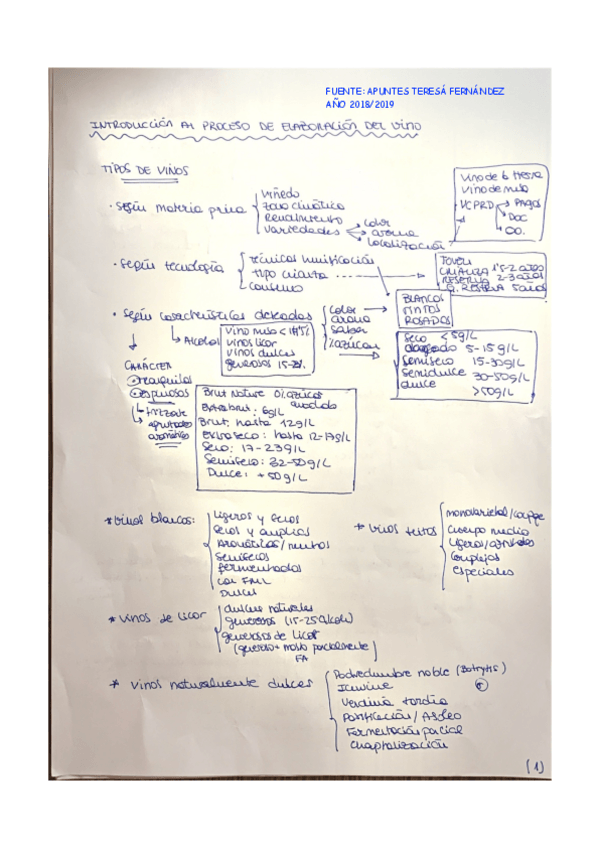 FUENTE: APUNTES TERESÁ FERNÁNDEZ
AÑO 2018/2019
INTRODUCCIÓN AL PROCESO DE ELABORACIÓN DEL VINO
TIPOS DE VINOS
· Según materia prima
Viñedo
Zona climática
Rendimiento
Variedades
color
aroma
localización
Vino de la tierra
Vino de mesa
VCPRD
Pagos
DOC
DO.
· Según tecnología
Técnicas vinificación
Tipo crianza
Consumo
JOVEN
CRIANZA 1'5-2 años
RESERVA 2-3 años
G. RESERVA 5 años
· Según características deseadas
color
aroma
sabor
%azúcar
BLANCOS
TINTOS
ROSADOS
Alcohol
Vino mesa
vinos licor
vinos dulces
generosos 15-
Seco <5g/L
5-15g/L
Semiseco 15-30g/L
Semidulce 30-50g/L
dulce >50g/L
CARÁCTER
tranquilos
espumosos
aromático
Brut Nature 0 azúcar
Extra brut: 6g/L
Brut: hasta 12g/L
Extra seco: hasta 12-17g/L
Seco: 17-23g/L
Semiseco: 32-50g/L
Dulce: +50g/L
* Vinos blancos:
Ligeros y secos
Secos y amplios
Aromáticos/
Semisecos
fermentados
con FML
Dulces
* Vinos tintos
monovarietal/coupage
Cuerpo medio
Ligeros/
Complejos
especiales
* Vinos de licor
dulces naturales
generosos (15-25%alcohol)
generosos de licor
(generoso + mosto parcialmente
FA)
* Vinos naturalmente dulces
Podredumbre noble (Botrytis)
Icewine
Vendimia tardía
Pasificación / Asoleo
Fermentación parcial
Chaptalización
(1)